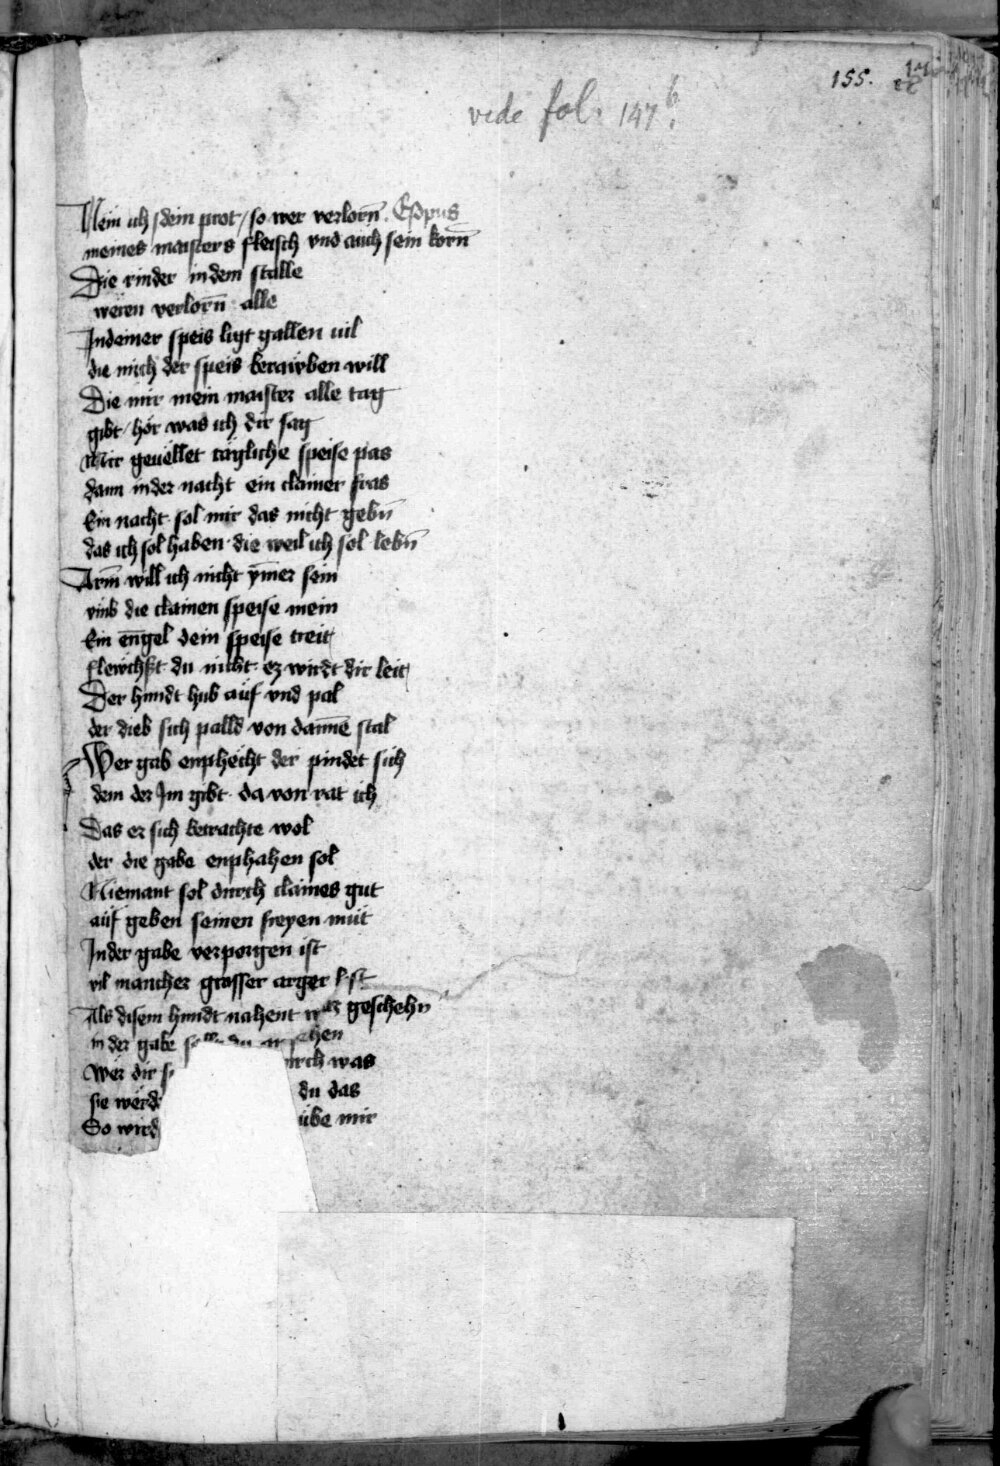 155.
vide fol. 147 b.
Nem ich dein prot / so wer verlorn̄. Esopus
meines maisters fleisch vnd auch sein korn̄
Die rinder in dem stalle
weren verlorn̄ alle
In deiner speis ligt gallen uil
die mich der speis berawben will
Die mir mein maister alle tag
gibt / hör was ich dir sag
Mir geuellet tägliche speise pas
dann in der nacht ein clainer fras
Ein nacht sol mir das nicht gebn̄
das ich sol haben die weil ich sol lebn̄
Arm̄ will ich nicht ym̄er sein
vmb die clainen speise mein
Ein en̄gel dein speise treit
flewchst du nicht ez wirdt dir leit
Der hundt hub auf vnd pal
der dieb sich palld von dann̄e stal
Wer gab enphecht der pindet sich
dem der Im gibt da von rat ich
Das er sich betrachte wol
der die gabe enphahen sol
Niemant sol durch claines gut
auf geben seinen freyen mut
In der gabe verporgen ist
vil mancher grosser arger list
Als disem hundt nahent waz geschehn̄
in der gabe
Wer dir durch was
sie du das
So wird mir